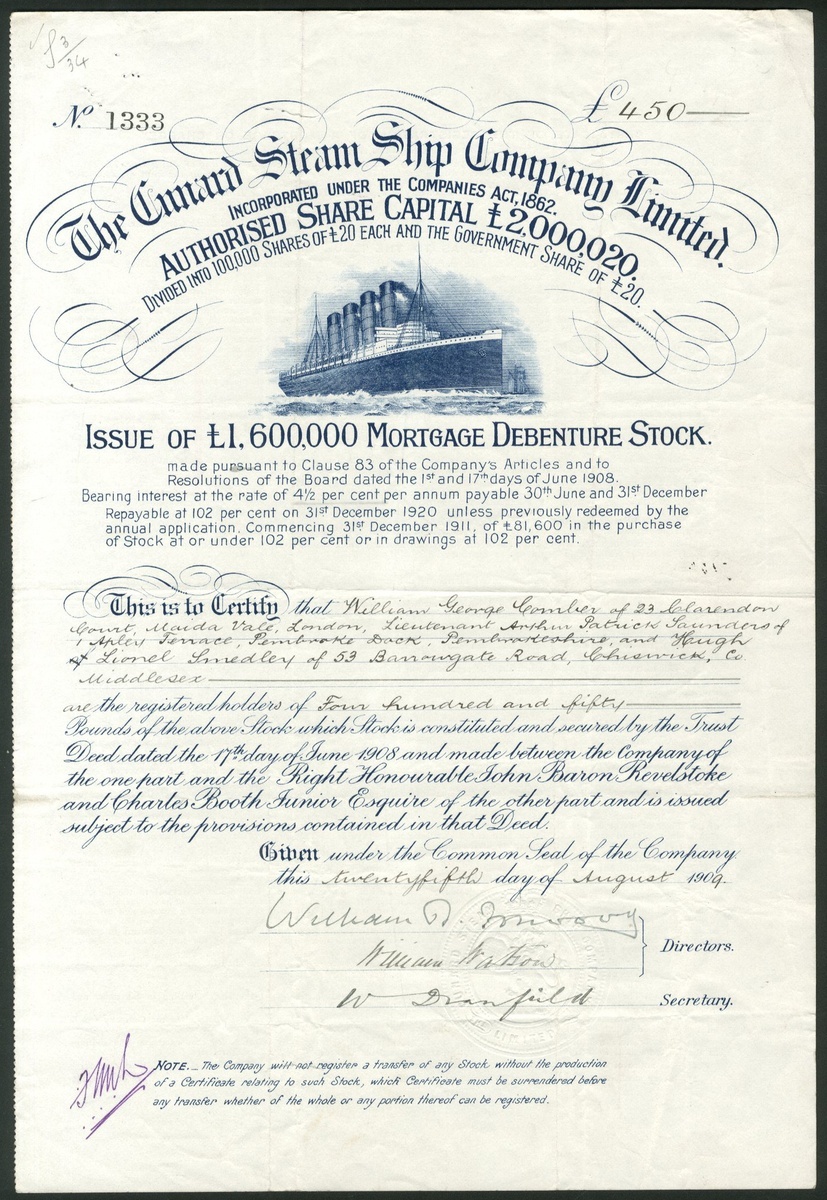 3/34
No. 1333
£ 450
The Cunard Steam Ship Company Limited.
INCORPORATED UNDER THE COMPANIES ACT, 1862.
AUTHORISED SHARE CAPITAL £2,000,020.
DIVIDED INTO 100,000 SHARES OF £20 EACH AND THE GOVERNMENT SHARE OF £20.
ISSUE OF £1,600,000 MORTGAGE DEBENTURE STOCK.
made pursuant to Clause 83 of the Company's Articles and to
Resolutions of the Board dated the 1st and 17th days of June 1908.
Bearing interest at the rate of 4½ per cent per annum payable 30th June and 31st December
Repayable at 102 per cent on 31st December 1920 unless previously redeemed by the
annual application. Commencing 31st December 1911, of £81,600 in the purchase
of Stock at or under 102 per cent or in drawings at 102 per cent.
This is to Certify that William George Comber of 23 Clarendon
Court, Maida Vale, London, Lieutenant Arthur Patrick Saunders of
1 Apley Terrace, Pembroke Dock, Pembrokeshire, and Hugh
Lionel Smedley of 53 Barrowgate Road, Chiswick, Co
Middlesex
are the registered holders of Four hundred and fifty
Pounds of the above Stock which Stock is constituted and secured by the Trust
Deed dated the 17th day of June 1908 and made between the Company of
the one part and the Right Honourable John Baron Revelstoke
and Charles Booth Junior Esquire of the other part and is issued
subject to the provisions contained in that Deed.
Given under the Common Seal of the Company
this twentyfifth day of August 1909.
William B.
William Watson
Directors.
W Dranfield
Secretary.
NOTE._ The Company will not register a transfer of any Stock without the production
of a Certificate relating to such Stock, which Certificate must be surrendered before
any transfer whether of the whole or any portion thereof can be registered.